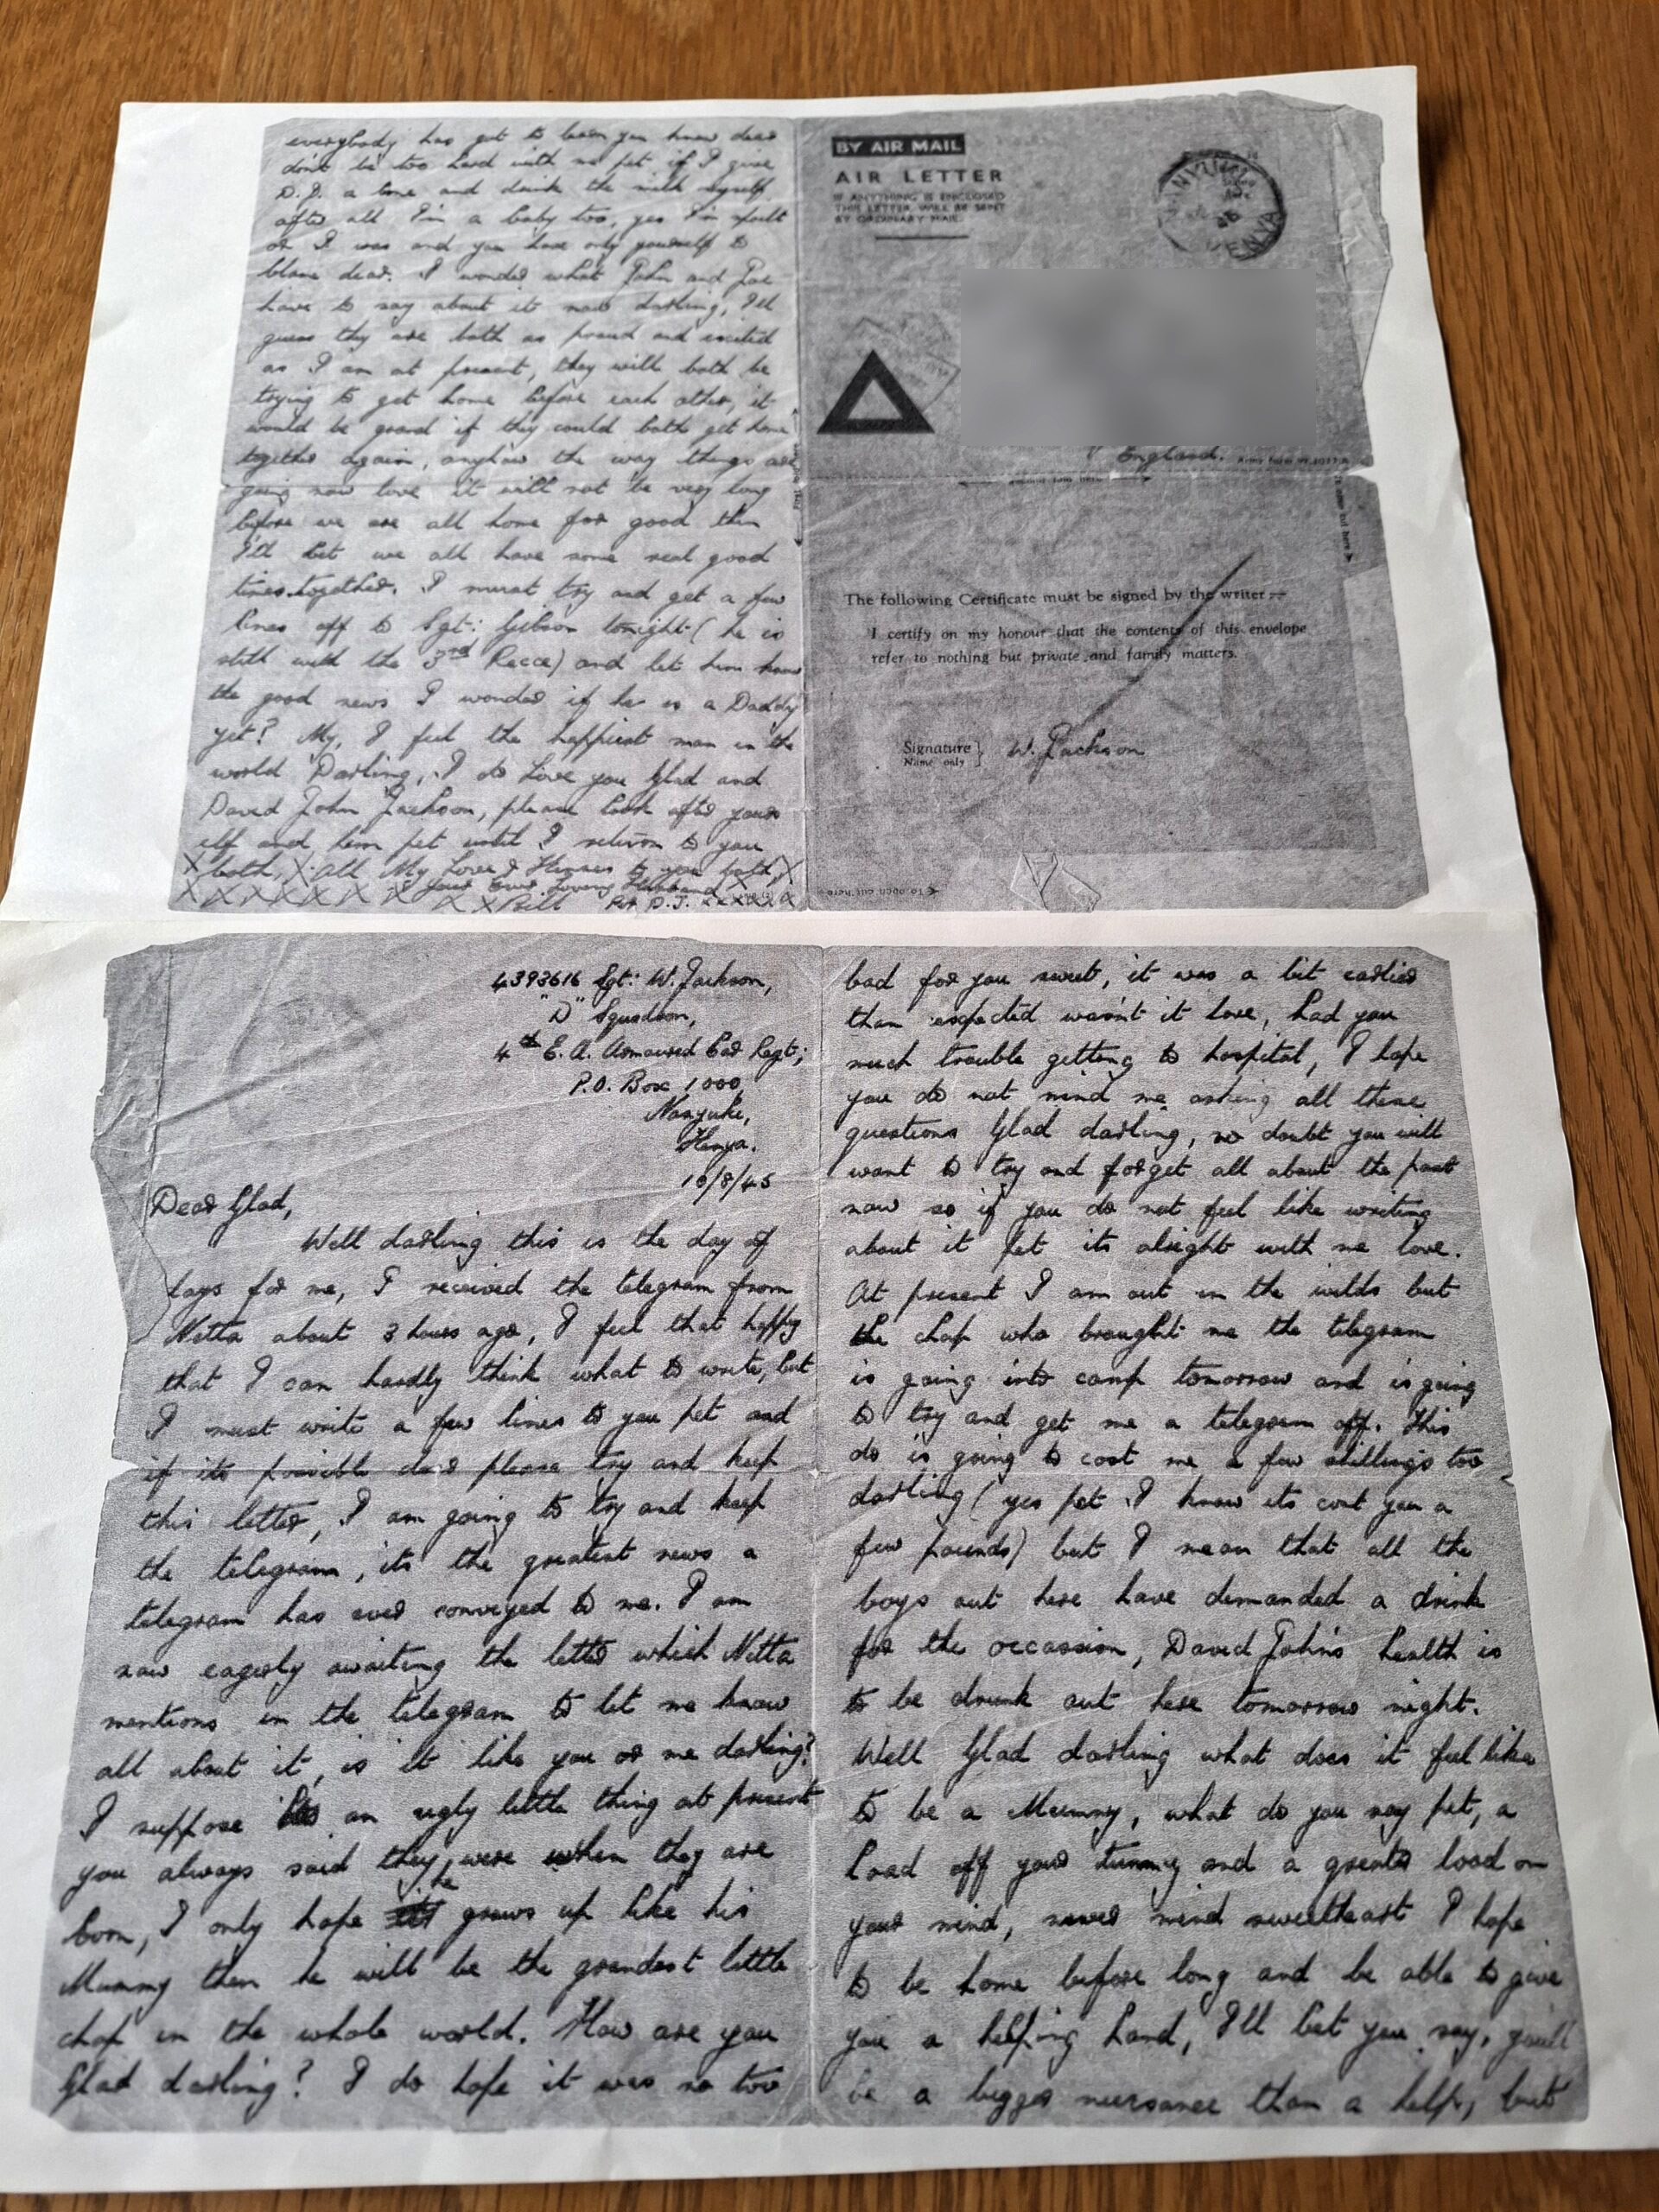 everybody has got to learn you know dear
don't be too hard with me pet if I give
D.J. a bone and drink the milk myself
after all I'm a baby too, yes I'm spoilt
or I was and you have only yourself to
blame dear. I wonder what John and Joe
have to say about it now darling, I'll
guess they are both as proud and excited
as I am at present, they will both be
trying to get home before each other, it
would be grand if they could both get home
together again, anyhow the way things are
going now love it will not be very long
before we are all home for good then
I'll bet we all have some real good
times together. I must try and get a few
lines off to Sgt: Gibson tonight (he is
still with the 3rd Recce) and let him know
the good news I wonder if he is a Daddy
yet? My, I feel the happiest man in the
world Darling, I do Love you Glad and
David John Jackson, please look after yours
elf and him pet until I return to you
X both, X All My Love & Kisses to you both, X
X X X X X X X X Your Ever Loving Husband X X
X X Bill For D.J. X X X X X X
BY AIR MAIL
AIR LETTER
IF ANYTHING IS ENCLOSED
THIS LETTER WILL BE SENT
BY ORDINARY MAIL.
NANYUKI
KENYA
England.
The following Certificate must be signed by the writer :—
I certify on my honour that the contents of this envelope
refer to nothing but private and family matters.
Signature } W. Jackson
Name only
To open cut here
4393616 Sgt: W. Jackson,
"D" Squadron,
4th E.A. Armoured Car Regt;
P.O. Box 1000,
Nanyuki,
Kenya.
16/8/45
Dear Glad,
Well darling this is the day of
days for me, I received the telegram from
Netta about 3 hours ago, I feel that happy
that I can hardly think what to write, but
I must write a few lines to you pet and
if its possible dear please try and keep
this letter, I am going to try and keep
the telegram, its the greatest news a
telegram has ever conveyed to me. I am
now eagerly awaiting the letter which Netta
mentions in the telegram to let me know
all about it, is it like you or me darling?
I suppose its an ugly little thing at present
you always said they were when they are
born, I only hope he grows up like his
Mummy then he will be the grandest little
chap in the whole world. How are you
Glad darling? I do hope it was no too
bad for you sweet, it was a bit earlier
than expected wasn't it love, had you
much trouble getting to hospital, I hope
you do not mind me asking all these
questions Glad darling, no doubt you will
want to try and forget all about the past
now so if you do not feel like writing
about it pet its alright with me love.
At present I am out in the wilds but
the chap who brought me the telegram
is going into camp tomorrow and is going
to try and get me a telegram off. This
do is going to cost me a few shillings too
darling (yes pet I know its cost you a
few pounds) but I mean that all the
boys out here have demanded a drink
for the occassion, David John's health is
to be drunk out here tomorrow night.
Well Glad darling what does it feel like
to be a Mummy, what do you say pet, a
load off your tummy and a greater load on
your mind, never mind sweetheart I hope
to be home before long and be able to give
you a helping hand, I'll bet you say, you'll
be a bigger nuisance than a help, but